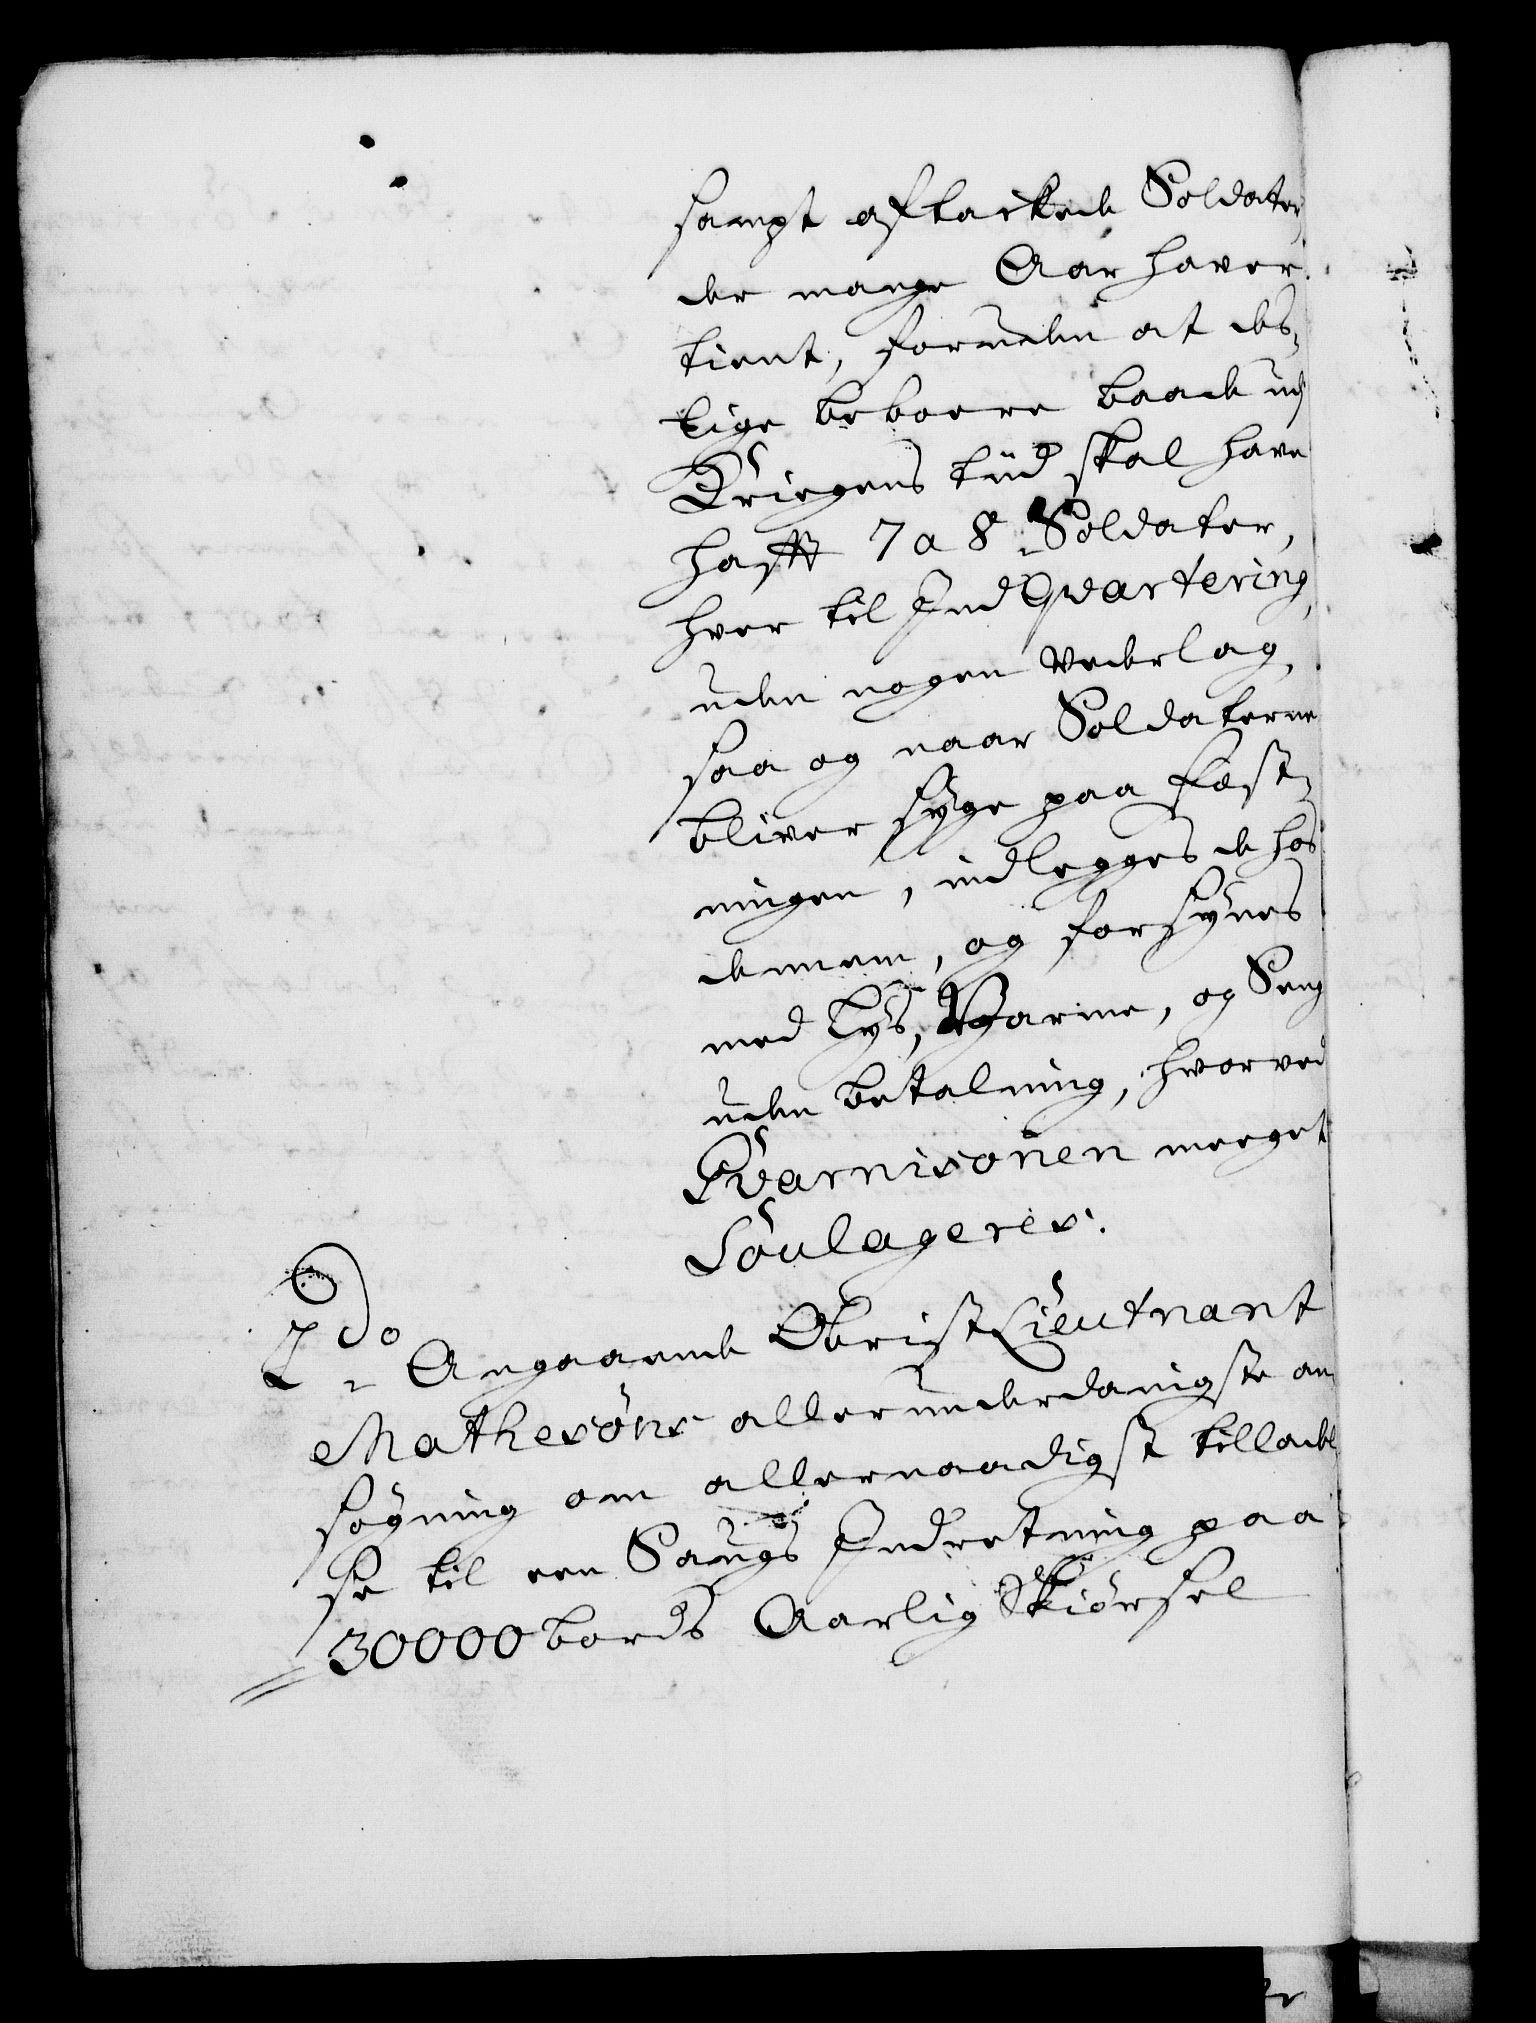 sampt aftackede Soldater
der mange Aar haver
tient, foruden at des-
lige beboere baade udj
Kriegens tiid skal have
hafft 7 a 8 Soldater,
hver til IndQvartering,
uden nogen Vederlag,
saa og naar Soldaterne
bliver syge paa Fæst-
ningen, indlegges de hos
dennem, og forsynes
med Lys, Varme, og Seng
uden betalning, hvorved
Gvarnisonen meeget
Soulageris.
2do Angaaende ObristLieutnant
Mathesöns allerunderdanigste an-
søgning om allernaadigst tilladel-
se til een Saugs Indretning paa
30000 bords Aarlig Skiörsel